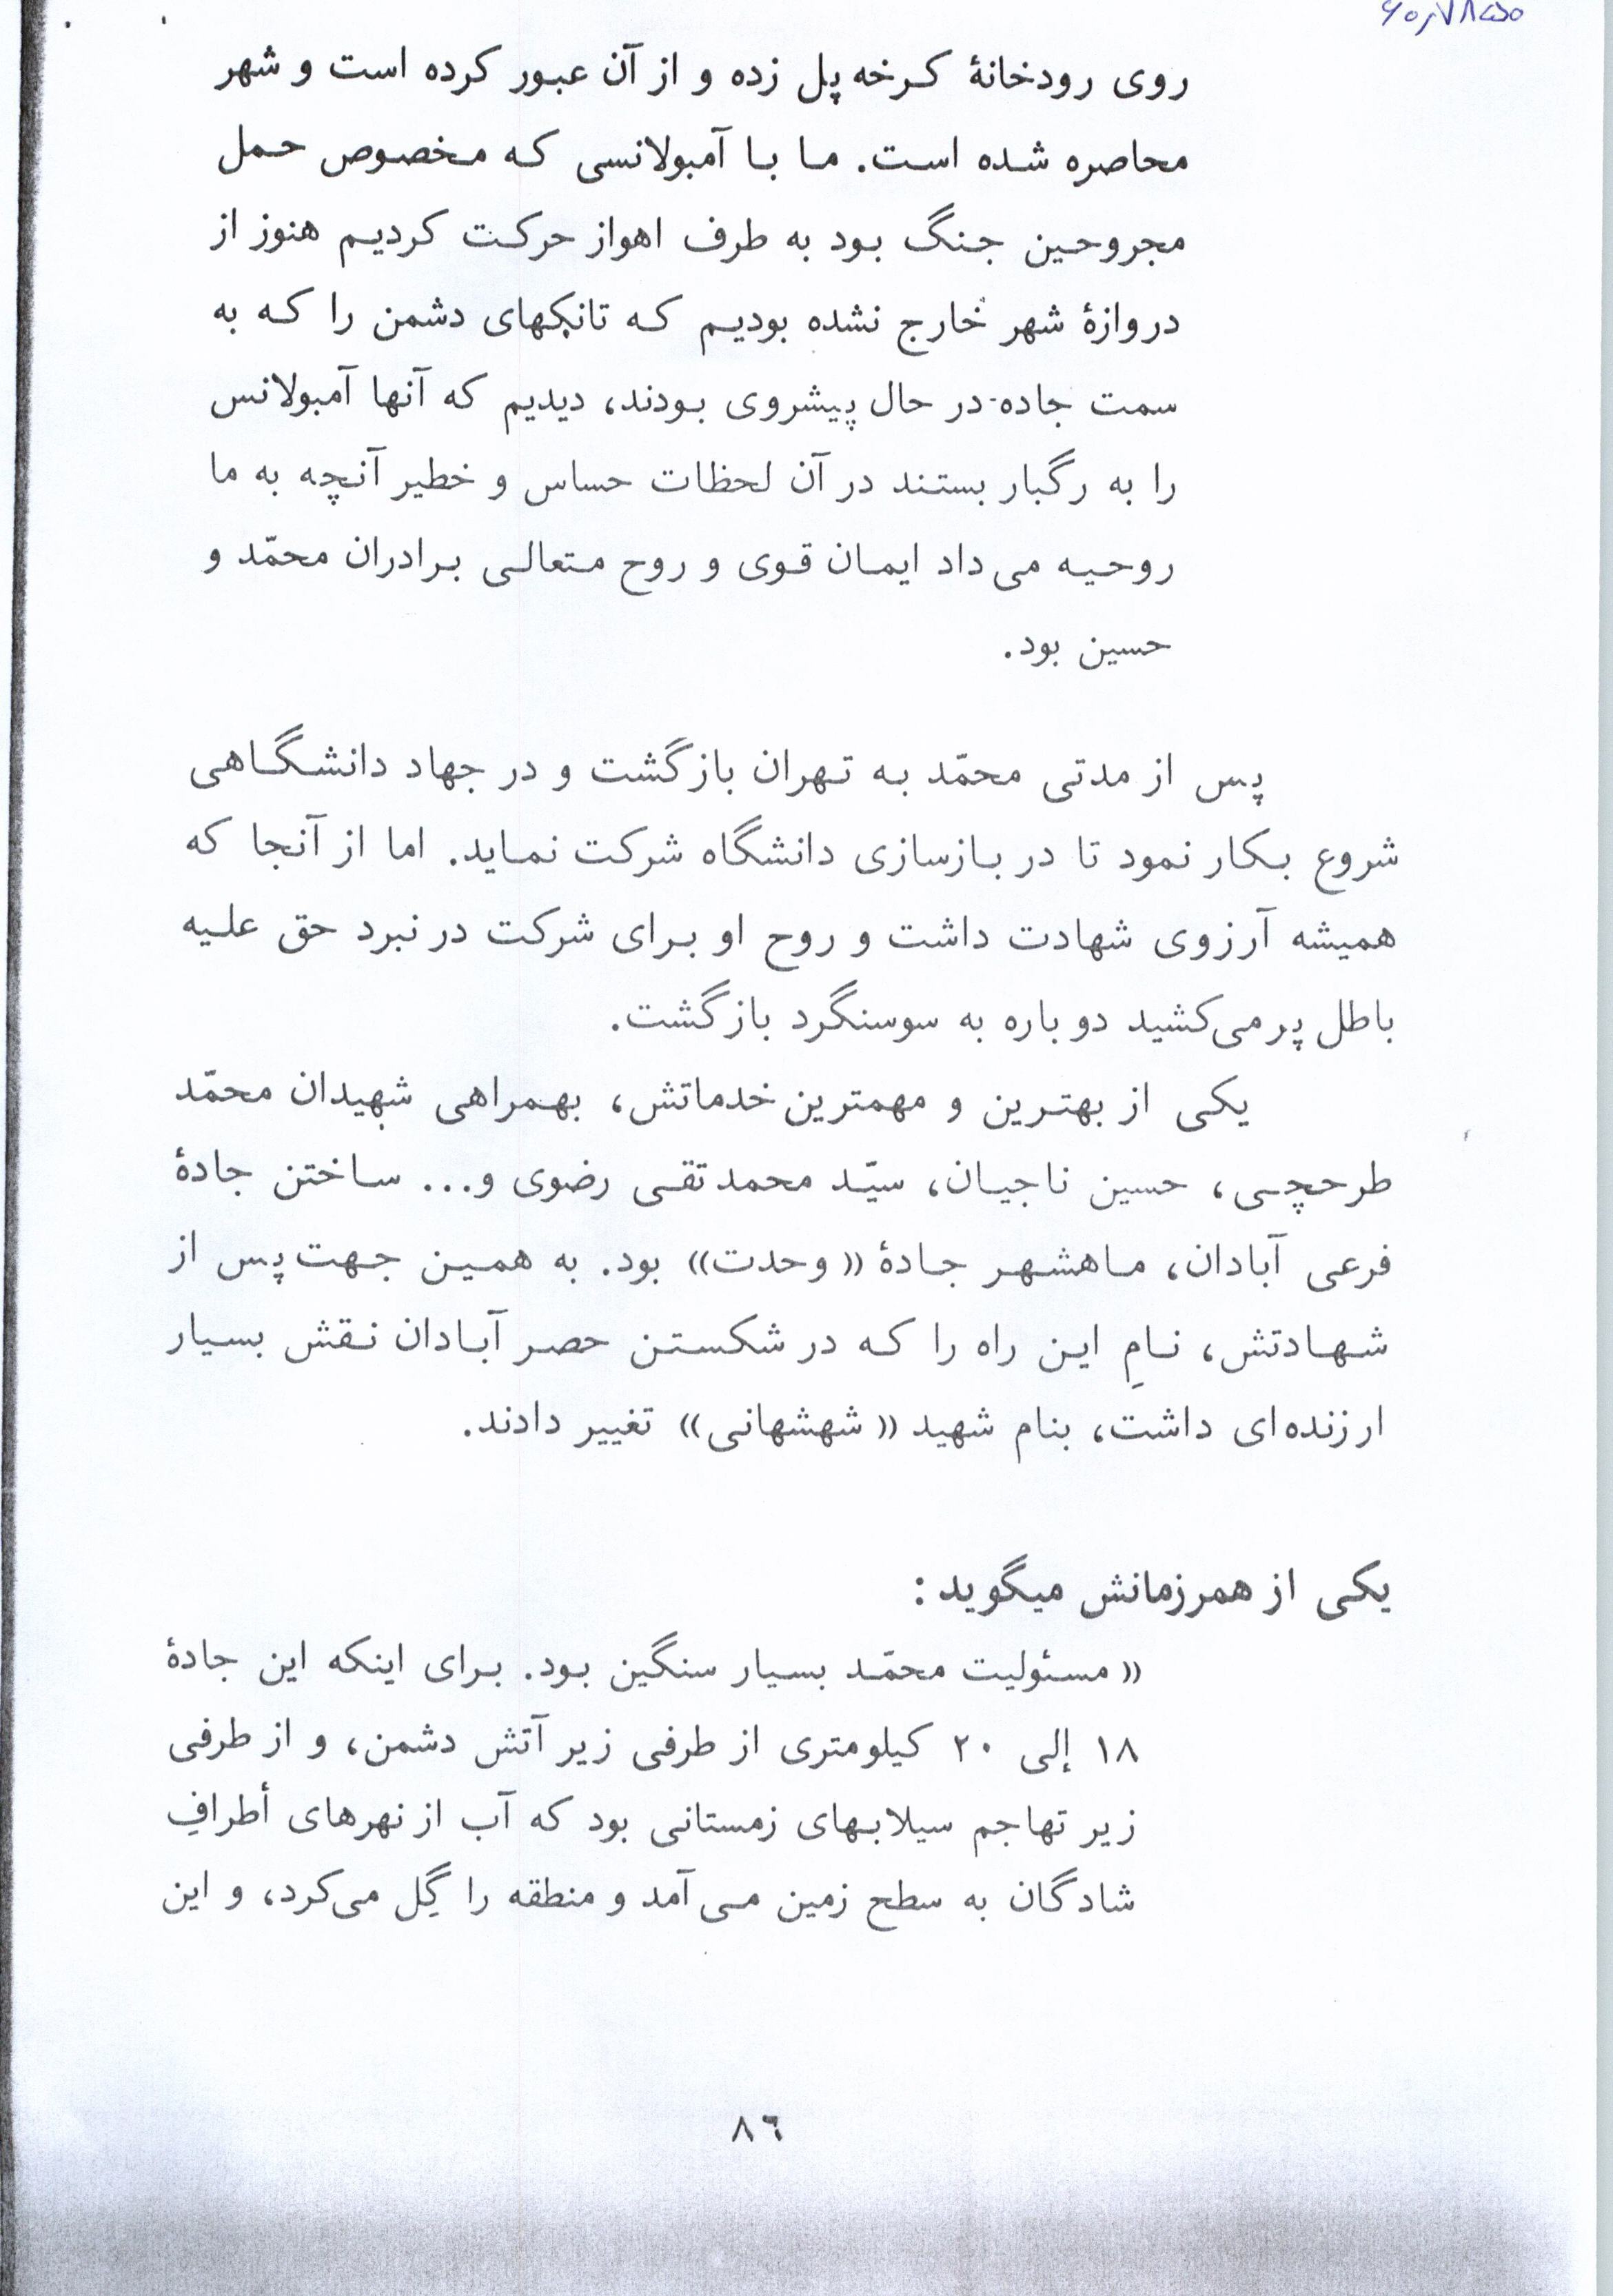 روی رودخانهٔ کرخه پل زده و از آن عبور کرده است و شهر
محاصره شده است. ما با آمبولانسی که مخصوص حمل
مجروحین جنگ بود به طرف اهواز حرکت کردیم هنوز از
دروازهٔ شهر خارج نشده بودیم که تانکهای دشمن را که به
سمت جاده در حال پیشروی بودند، دیدیم که آنها آمبولانس
را به رگبار بستند در آن لحظات حساس و خطیر آنچه به ما
روحیه می‌داد ایمان قوی و روح متعالی برادران محمّد و
حسین بود.
پس از مدتی محمّد به تهران بازگشت و در جهاد دانشگاهی
شروع بکار نمود تا در بازسازی دانشگاه شرکت نماید. اما از آنجا که
همیشه آرزوی شهادت داشت و روح او برای شرکت در نبرد حق علیه
باطل پر می‌کشید دوباره به سوسنگرد بازگشت.
یکی از بهترین و مهمترین خدماتش، بهمراهی شهیدان محمّد
طرحچی، حسین ناجیان، سیّد محمدتقی رضوی و... ساختن جادهٔ
فرعی آبادان، ماهشهر جادهٔ «وحدت» بود. به همین جهت پس از
شهادتش، نامِ این راه را که در شکستن حصر آبادان نقش بسیار
ارزنده‌ای داشت، بنام شهید «شهشهانی» تغییر دادند.
یکی از همرزمانش میگوید:
«مسئولیت محمّد بسیار سنگین بود. برای اینکه این جادهٔ
۱۸ إلی ۲۰ کیلومتری از طرفی زیر آتش دشمن، و از طرفی
زیر تهاجم سیلابهای زمستانی بود که آب از نهرهای أطرافِ
شادگان به سطح زمین می‌آمد و منطقه را گِل می‌کرد، و این
۸٦